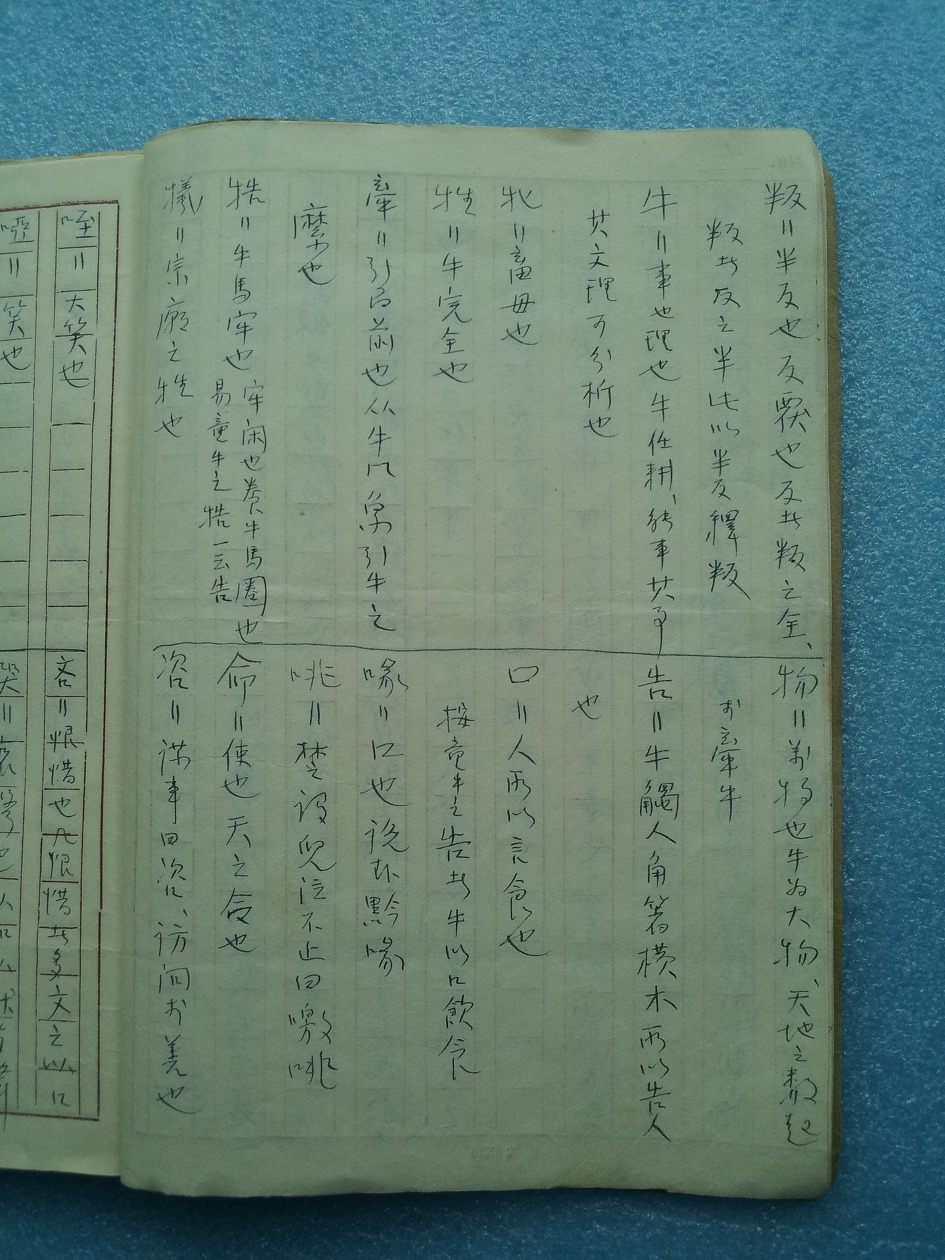 叛=半反也反覆也反者叛之全、
叛者反之半也以半反釋叛
牛=事也理也牛任耕、能事其事
其文理可分析也
牝=畜母也
牷=牛完全也
牽=引而前也从牛冂象引牛之
縻也
牿=牛馬牢也
牢闲也養牛馬圈也
易童牛之牿一云告
犧=宗廟之牲也
物=萬物也牛为大物、天地之數起
於牽牛
告=牛觸人角箸橫木所以告人
也
口=人所以言食也
按童牛之告者牛以口飲食
喙=口也説卦黔喙
咷=楚謂兒泣不止曰噭咷
命=使也天之命也
咨=謀事曰咨、訪问於善也
咥=大笑也
啞=笑也
吝=恨惜也凡恨惜者多文之以口
哭=哀聲也